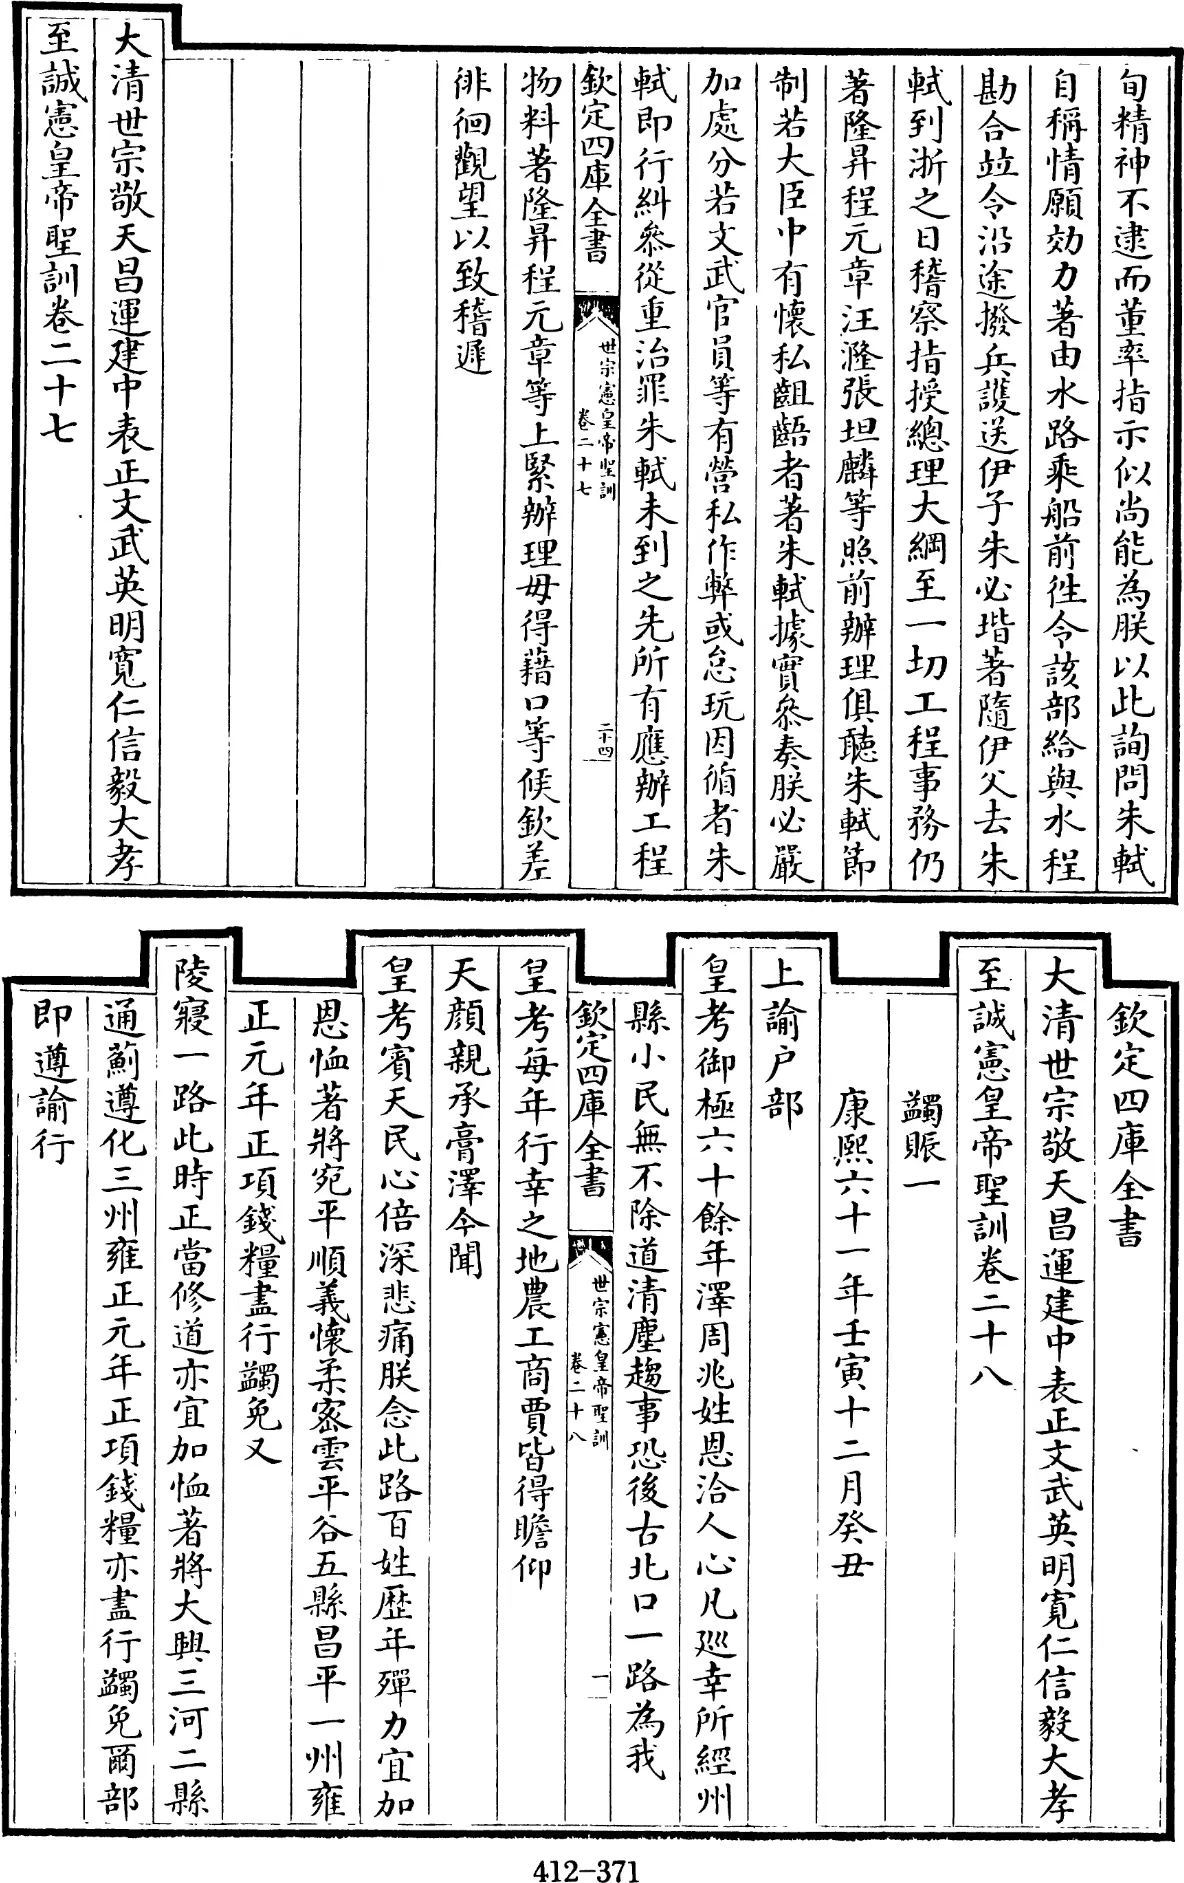 旬精神不逮而董率指示似尚能為朕以此詢問朱軾
自稱情願効力著由水路乘船前徃令該部給與水程
勘合竝令沿途撥兵護送伊子朱必堦著隨伊父去朱
軾到浙之日稽察指授總理大綱至一切工程事務仍
著隆昇程元章汪漋張坦麟等照前辦理俱聽朱軾節
制若大臣中有懷私齟齬者著朱軾據實叅奏朕必嚴
加處分若文武官員等有營私作弊或怠玩因循者朱
軾即行糾叅從重治罪朱軾未到之先所有應辦工程
欽定四庫全書
世宗憲皇帝聖訓
卷二十七
二十四
物料著隆昇程元章等上緊辦理毋得藉口等候欽差
徘徊觀望以致稽遲
大清世宗敬天昌運建中表正文武英明寬仁信毅大孝
至誠憲皇帝聖訓卷二十七
欽定四庫全書
大清世宗敬天昌運建中表正文武英明寬仁信毅大孝
至誠憲皇帝聖訓卷二十八
蠲賑一
康熙六十一年壬寅十二月癸丑
上諭户部
皇考御極六十餘年澤周兆姓恩洽人心凡巡幸所經州
縣小民無不除道清塵趨事恐後古北口一路為我
欽定四庫全書
世宗憲皇帝聖訓
卷二十八
一
皇考每年行幸之地農工商賈皆得瞻仰
天顔親承膏澤今聞
皇考賓天民心倍深悲痛朕念此路百姓歷年殫力宜加
恩恤著將宛平順義懷柔密雲平谷五縣昌平一州雍
正元年正項錢糧盡行蠲免又
陵寢一路此時正當修道亦宜加恤著將大興三河二縣
通薊遵化三州雍正元年正項錢糧亦盡行蠲免爾部
即遵諭行
412-371